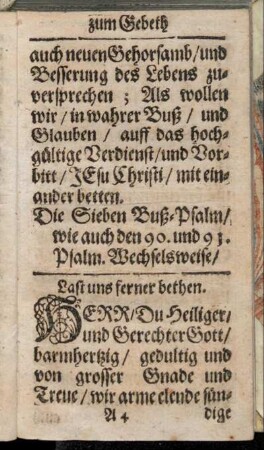 zum Gebeth
auch neuen Gehorsamb / und
Besserung des Lebens zu-
versprechen ; Als wollen
wir / in wahrer Buß / und
Glauben / auff das hoch-
gültige Verdienst / und Vor-
bitt / JEsu Christi / mit ein-
ander betten.
Die Sieben Buß-Psalm /
wie auch den 90. und 93.
Psalm. Wechselsweise /
Last uns ferner bethen.
HERR / Du Heiliger /
und Gerechter Gott /
barmhertzig / gedultig und
von grosser Gnade und
Treue / wir arme elende sün-
A 4 dige